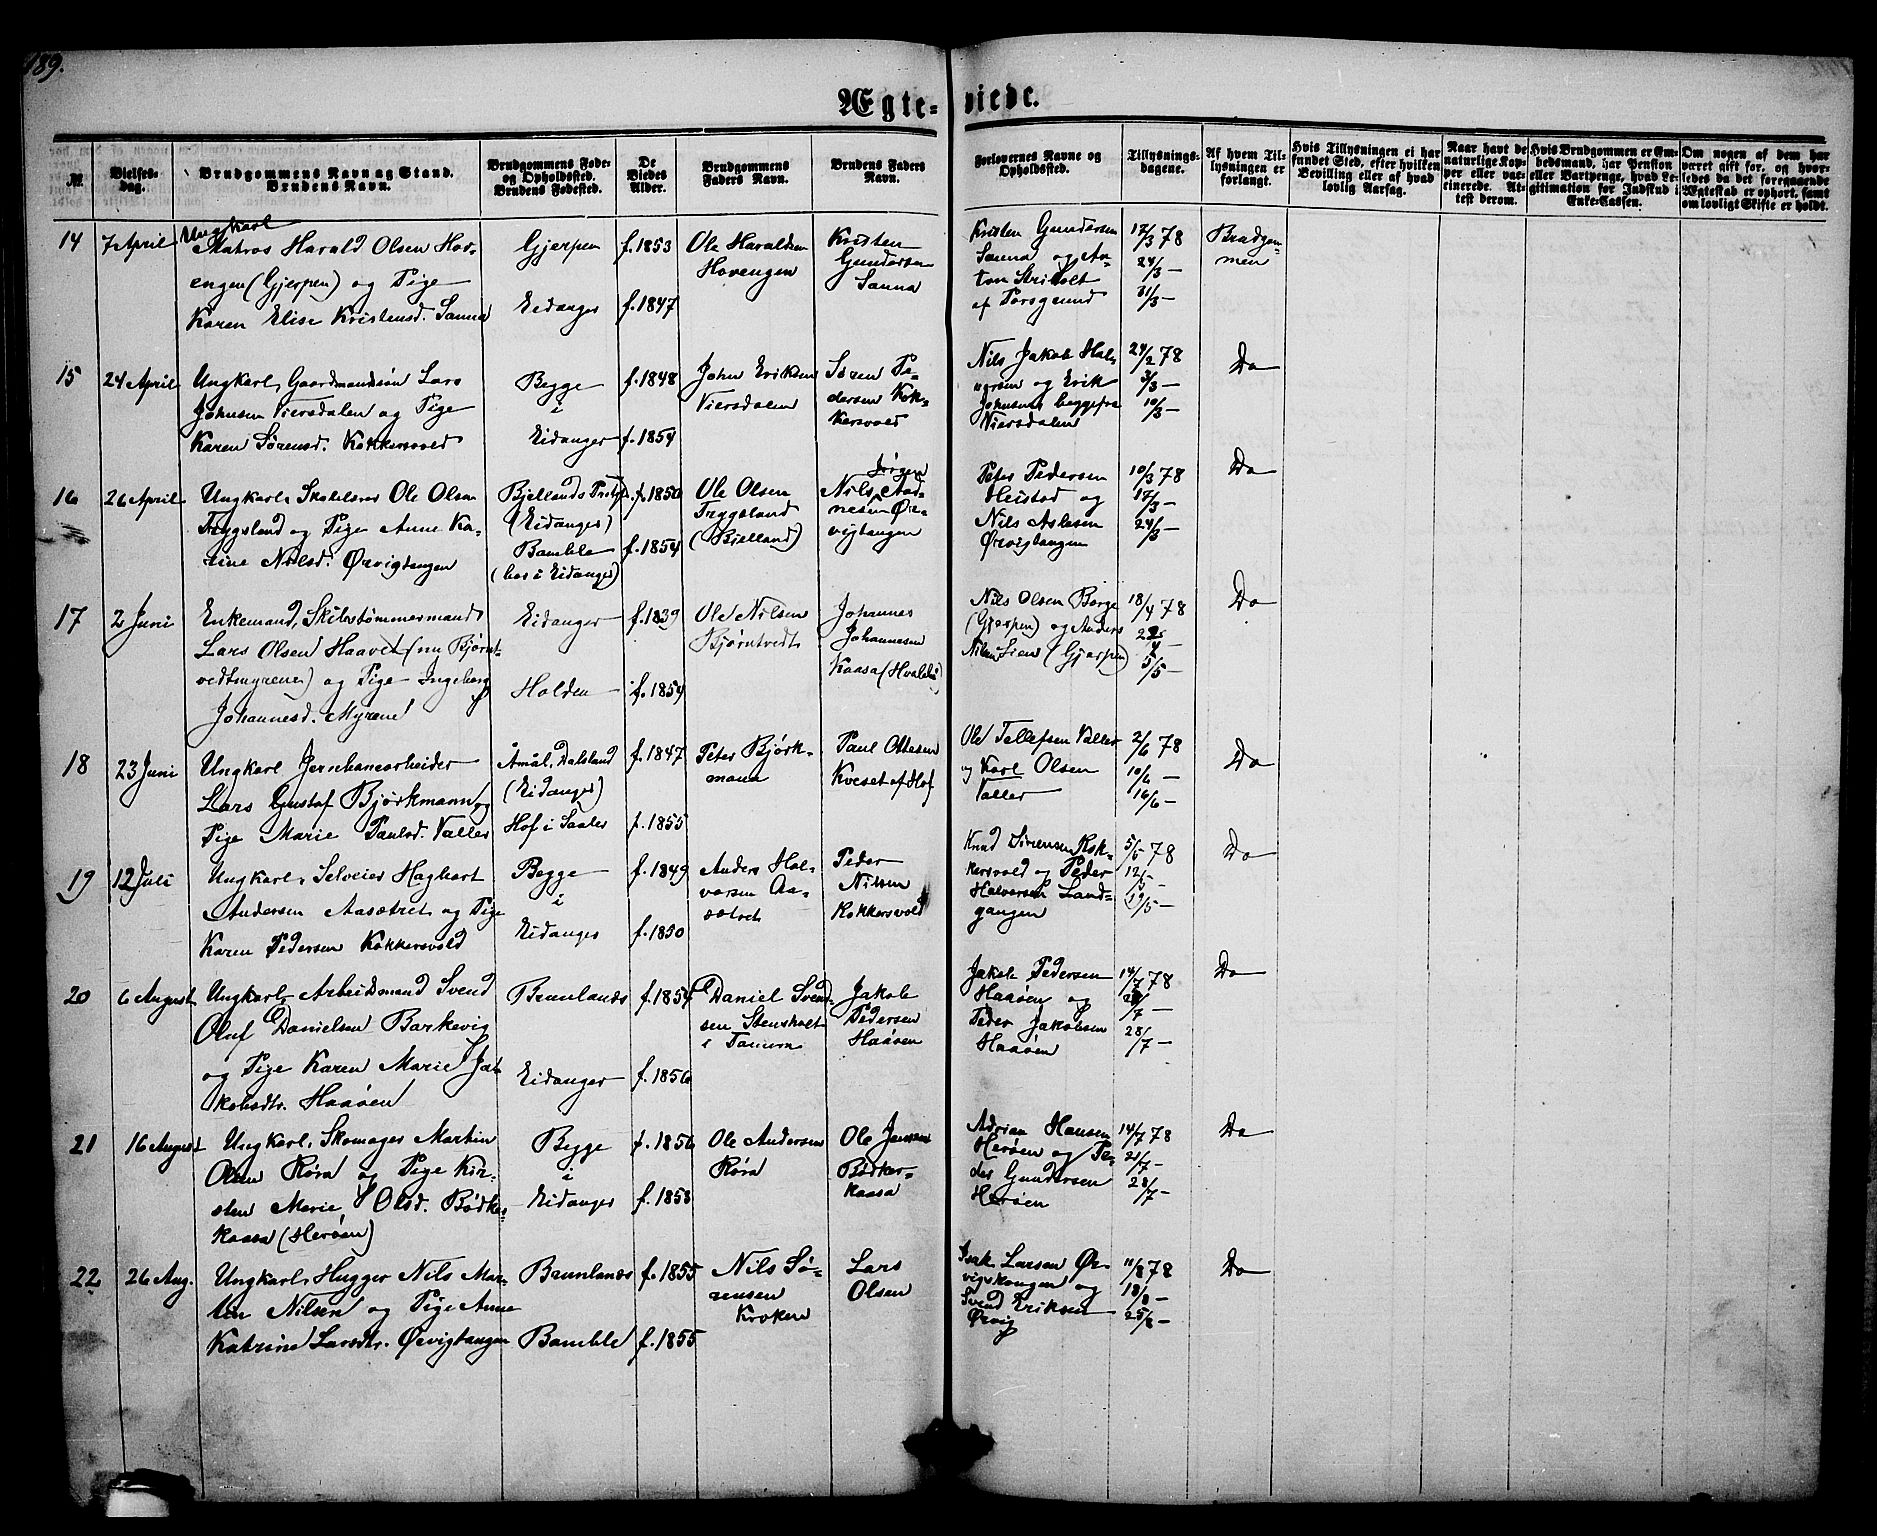 189.
Ægteviede.
№
Vielses-
dag.
Brudgommens Navn ag Stand.
Brudens Navn.
Brudgommens Føde-
og Opholdssted.
Brudens Fødested.
De
Viedes
Alder.
Brudgommens
Faders Navn.
Brudens Faders
Navn.
Forlovernes Navne og
Opholdssted.
Tillysnings-
dagene.
Af hvem Til-
lysningen er
forlangt.
Hvis Tillysningen ei har
fundet Sted, efter hvilken
Bevilling eller af hvad
lovlig Aarsag.
Naar havt de
naturlige Kop-
per eller vac-
cinerede. At-
test derom.
Hvis Brudgommen er Em-
bedsmand, har Pension
eller Vartpenge, hvad Le-
gitimation for Indskud i
Enke-Cassen.
Om nogen af dem har
været gift før, og hvor-
ledes da det foregaaende
Ægteskab er ophørt, samt
om lovligt Skifte er holdt.
14
7 April
Ungkarl
Matros Harald Olsen Hov-
engen (Gjerpen) og Pige
Karen Elise Kristensd. Sanna
Gjerpen
Eidanger
f. 1853
f. 1847
Ole Haraldsen
Hovengen
Kristen
Gundersen
Sanna
Kristen Gundersen
Sanna og An-
ton Striholt
af Porsgrund
17/3 78
24/3 —
31/3 —
Brudgom-
men
15
24 April
Ungkarl, Gaardmandssøn Lars
Johnsen Viersdalen og Pige
Karen Sørensd. Kokkersvold
Begge
i
Eidanger
f. 1848
f. 1854
John Eriksen
Viersdalen
Søren Pe-
dersen Kok-
kersvold
Nils Jakob Hal-
vorsen og Erik
Johnsen begge fra
Viersdalen
24/2 78
3/3 —
10/3 —
Do
16
26 April
Ungkarl, Skolelærer Ole Olsen
Trygsland og Pige Anne Ka-
rine Nilsd. Ørvigtangen
Bjellands Prstgj.
(Eidanger)
Bamble
(bor i Eidanger)
f. 1850
f. 1854
Ole Olsen
Trygsland
(Bjelland)
Jørgen
Nils Aad-
nesen Ør-
vigtangen
Peter Pedersen
Heistad og
Nils Aslesen
Ørvigtangen
10/3 78
17/3 —
24/3 —
Do
17
2 Juni
Enkemand, Skibstømmermand
Lars Olsen Haavet (nu Bjørnt-
vedtmyrene) og Pige Ingeborg
Johannesd. Myrene
Eidanger
Holden
f. 1839
f. 1854
Ole Nilsen
Bjørntvedt
Johannes
Johannesen
Kaasa (Hvalen)
Nils Olsen Borge
(Gjerpen) og Anders
Nilsen Lien (Gjerpen)
18/4 78
22/4 —
5/5 —
Do
18
23 Juni
Ungkarl Jernbanearbeider
Lars Gustaf Bjørkmann og
Pige Marie Paulsd. Valler
Åmål, Dalsland
(Eidanger)
Hof i Soløer
f. 1847
f. 1855
Peter Bjørk-
mann
Paul Ottesen
Kveset af Hof
Ole Tellefsen Valler
og Karl Olsen
Valler
2/6 78
10/6 —
16/6 —
Do
19
12 Juli
Ungkarl, Selveier Hagbart
Andersen Aasætret og Pige
Karen Pedersen Kokkersvold
Begge
i
Eidanger
f. 1849
f. 1850
Anders Hal-
vorsen Aa-
sætret
Peder
Nilsen
Kokkersvold
Knud Sørensen Kok-
kersvold og Peder
Halvorsen Land-
gangen
5/5 78
12/5 —
19/5 —
Do
20
6 August
Ungkarl, Arbeidsmand Svend
Oluf Danielsen Barkevig
og Pige Karen Marie Ja-
kobsdtr. Haaøen
Brunlanæs
Eidanger
f. 1854
f. 1856
Daniel Svend-
sen Stensholt
i Tanum
Jakob
Pedersen
Haaøen
Jakob Pedersen
Haaøen og
Peder Jakobsen
Haaøen
14/7 78
21/7 —
28/7 —
Do
21
16 August
Ungkarl, Skomager Martin
Olsen Røra og Pige Kir-
sten Marie Olsd. Bødker-
kaasa (Herøen)
Begge
i
Eidanger
f. 1856
f. 1858
Ole Andersen
Røra
Ole Jensen
Bødker-
kaasa
Adrian Hansen
Herøen og Pe-
der Gundersen
Herøen
14/7 78
21/7 —
28/7 —
Do
22
26 Aug.
Ungkarl, Hugger Nils Mar-
tin Nilsen og Pige Anne
Katrine Larsdtr. Ørvigtangen
Brunlanæs
Bamble
f. 1855
f. 1855
Nils Sø-
rensen
Kroken
Lars
Olsen
Isak Larsen Ør-
vigskongen og
Svend Eriksen
Ørvig
11/8 78
18/8 —
25/8 —
Do